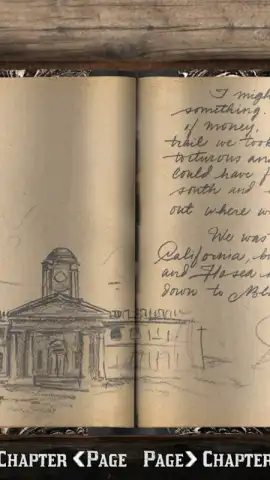 I migh
something.
of money,
trail we took
torturous an
could have f
south and
out where w
We was
California, b
and Hosea
down to Bl
Chapter < Page Page > Chapter